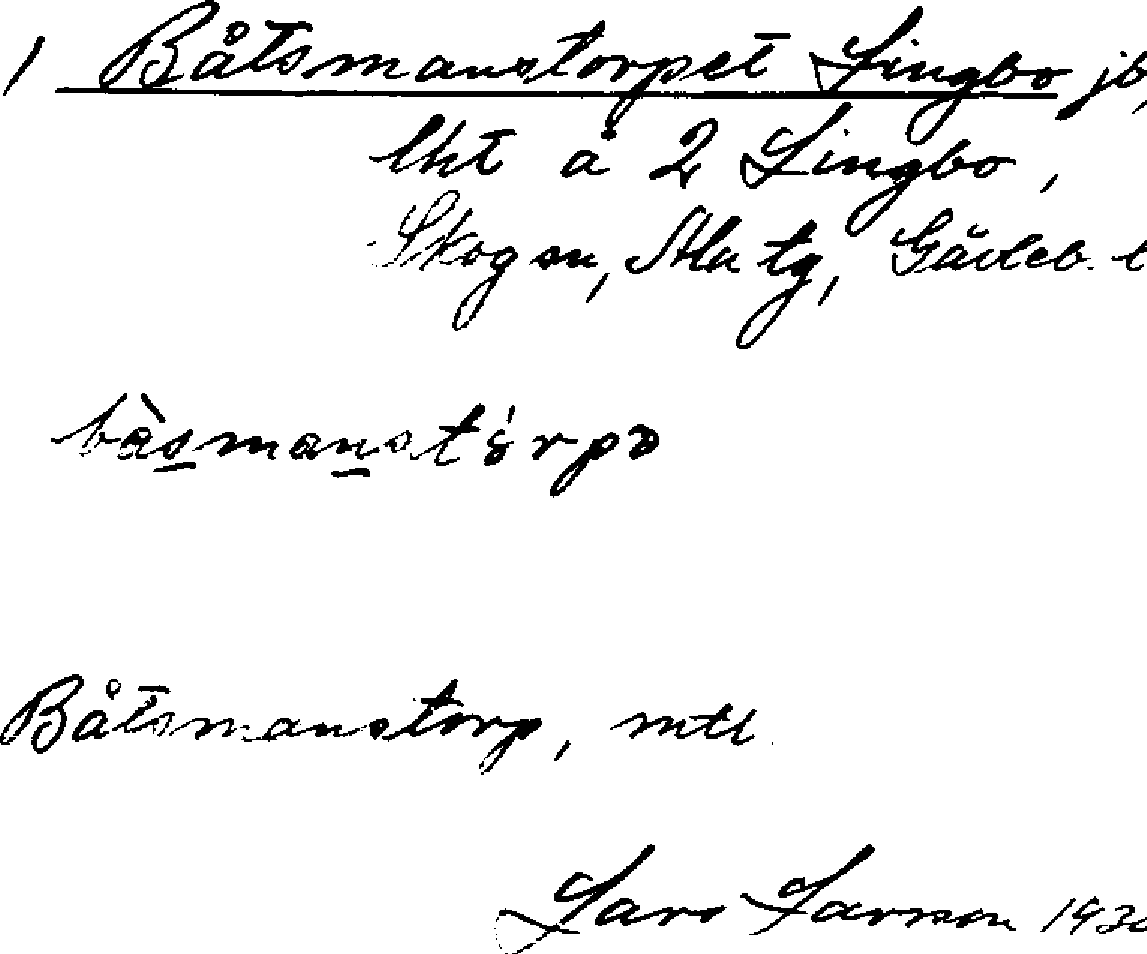 1 Båtsmanstorpet Lingbo jb,
lht å 2 Lingbo,
Skog sn, Ala tg, Gävleb. l
bàsmanstòrpə
Båtsmanstorp, mtl
Lars Larsson 1930